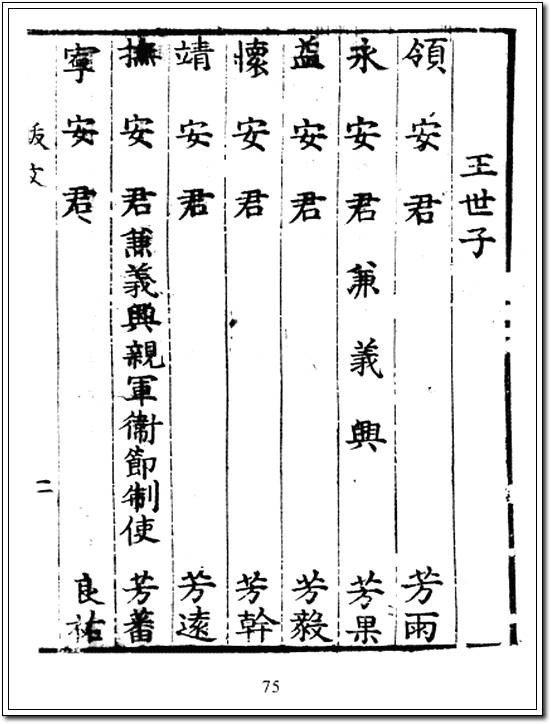 王世子
領安君 芳雨
永安君兼義興 芳果
益安君 芳毅
懷安君 芳幹
靖安君 芳遠
撫安君兼義興親軍衛節制使 芳蕃
寧安君 良祐
跋文
二
75